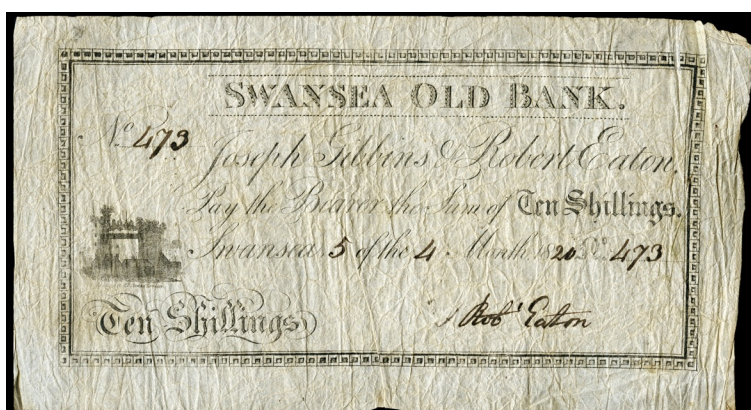 SWANSEA OLD BANK.
No 473
Joseph Gibbins & Robert Eaton,
Pay the Bearer the Sum of Ten Shillings.
Swansea 5 of the 4 Month 1820 No 473
Ten Shillings
Robt Eaton